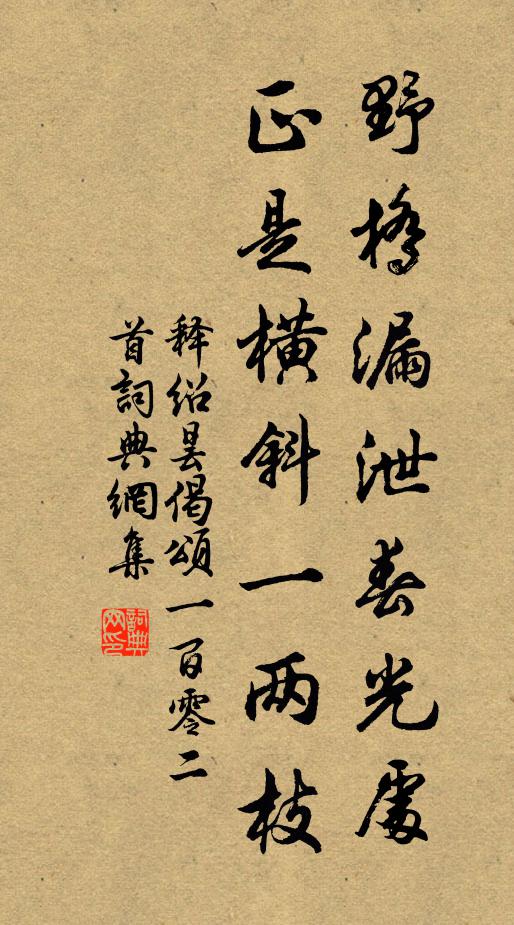 野橋漏泄春光處
正是橫斜一两枝
释绍昙偈頌一百零二
首詞典網集
詞典网印